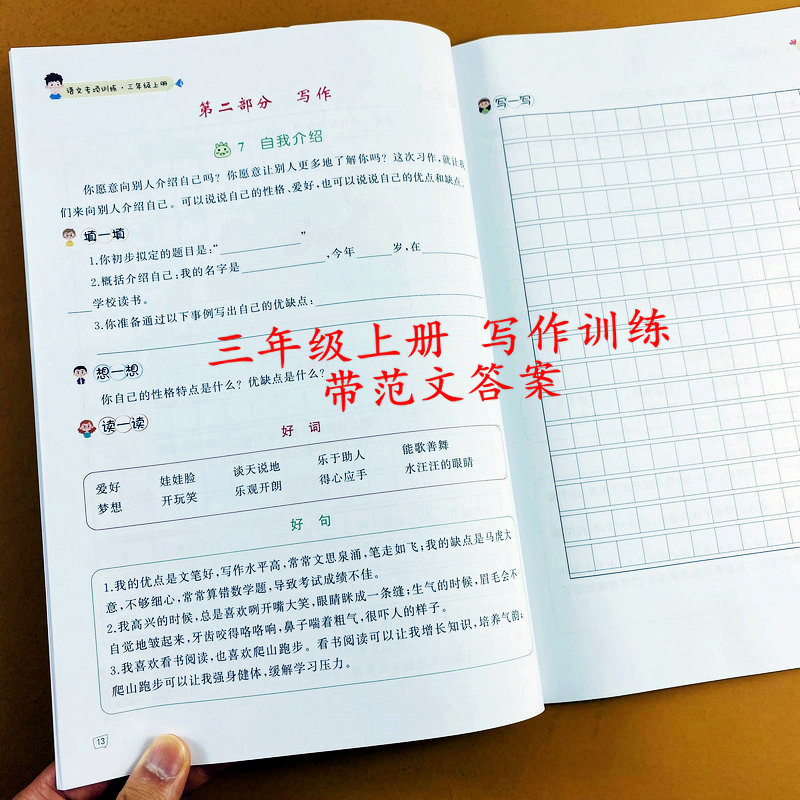 语文专项训练·三年级上册
第二部分 写作
7 自我介绍
你愿意向别人介绍自己吗？你愿意让别人更多地了解你吗？这次习作，就让我
们来向别人介绍自己。可以说说自己的性格、爱好，也可以说说自己的优点和缺点。
填一填
1.你初步拟定的题目是：“____________”
2.概括介绍自己：我的名字是____________，今年_____岁，在________
____学校读书。
3.你准备通过以下事例写出自己的优缺点：____________
三年级上册 写作训练
带范文答案
想一想
你自己的性格特点是什么？优缺点是什么？
读一读
好 词
爱好 娃娃脸 谈天说地 乐于助人 能歌善舞
梦想 开玩笑 乐观开朗 得心应手 水汪汪的眼睛
好 句
1.我的优点是文笔好，写作水平高，常常文思泉涌，笔走如飞；我的缺点是马虎大
意，不够细心，常常算错数学题，导致考试成绩不佳。
2.我高兴的时候，总是喜欢咧开嘴大笑，眼睛眯成一条缝；生气的时候，眉毛会不
自觉地皱起来，牙齿咬得咯咯响，鼻子喘着粗气，很吓人的样子。
3.我喜欢看书阅读，也喜欢爬山跑步。看书阅读可以让我增长知识，培养气韵；
爬山跑步可以让我强身健体，缓解学习压力。
13
写一写